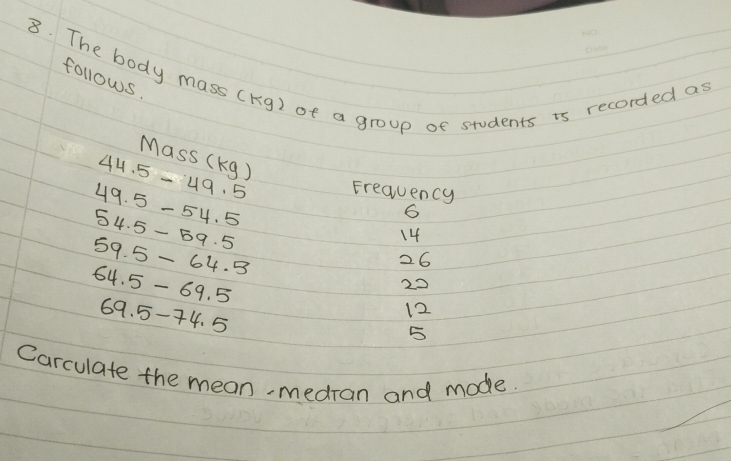 3. The body mass (kg) of a group of students is recorded as
follows.
Mass (kg) Frequency
44.5 - 49.5 6
49.5 - 54.5 14
54.5 - 59.5 26
59.5 - 64.5 22
64.5 - 69.5 12
69.5-74.5 5
Carculate the mean, median and mode.